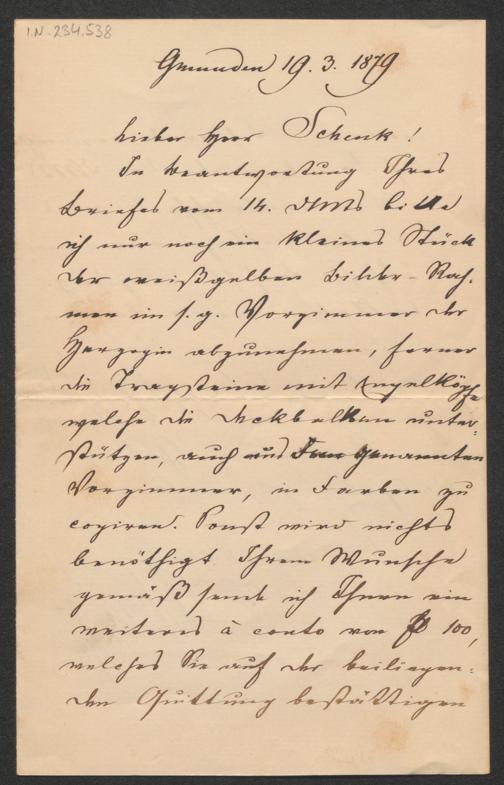 I.N. 234.538
Gmunden 19. 3. 1879
Lieber Herr Schenk!
In Beantwortung Ihres
Briefes vom 14. dMts bitte
ich nur noch ein kleines Stück
der weißgelben Bilder-Rah-
men im s. g. Vorzimmer der
Herzogin abzunehmen, ferner
die Tragsteine mit Engelköpfe
welche die Deckbalken unter-
stützen, auch aus genannten
Vorzimmer, in Farben zu
copiren. Sonst wird nichts
benöthigt. Ihrem Wunsche
gemäß sende ich Ihnen ein
weiteres à conto von 100,
welches Sie auf der beiliegen-
den Quittung bestättigen